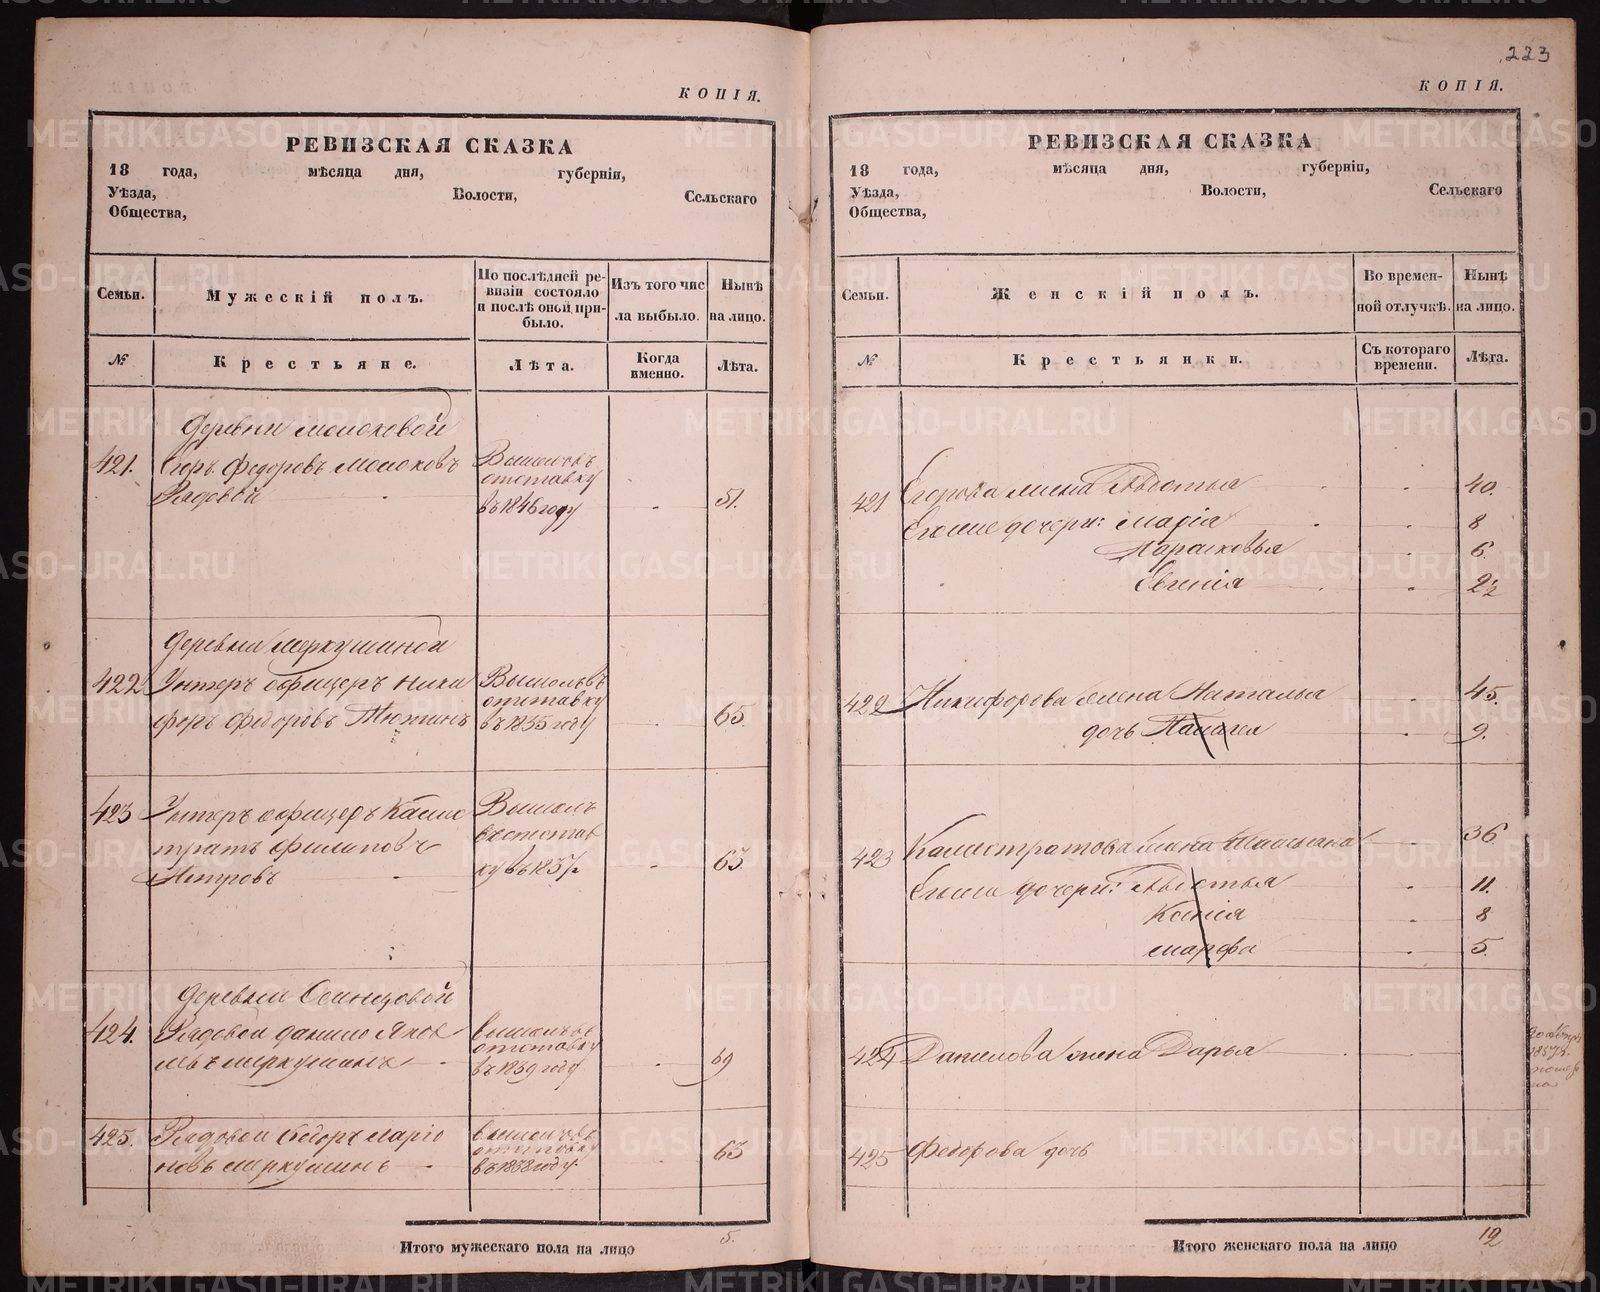 223
КОПІЯ.
РЕВИЗСКАЯ СКАЗКА
18 года, мѣсяца дня, губерніи,
Уѣзда, Волости, Сельскаго
Общества,
Семьи. Мужескій полъ. По послѣдней ревизіи состояло и послѣ оной прибыло. Изъ того числа выбыло. Нынѣ на лицо.
№ Крестьяне. Лѣта. Когда именно. Лѣта.
Деревни Молоковой
421. Егоръ Федоровъ Молоковъ Вышелъ въ
Рядовой отставку
въ 1846 году 51.
Деревни Меркушиной
422 Унтеръ офицеръ Ники Вышелъ въ
форъ Федоровъ Тютинъ отставку
въ 1835 году 65.
423 Унтеръ офицеръ Калис Вышелъ
тратъ Филиповъ въ отстав
Петровъ ку въ 1837 г. 63.
Деревни
424. Рядовой Данило Яков вышелъ въ
левъ Меркушинъ отставку
въ 1839 году 69
425. Рядовой Федоръ Ларіо вышелъ въ
новъ Меркушинъ отставку
въ 1838 году. 63
Итого мужескаго пола на лицо 5.
КОПІЯ.
РЕВИЗСКАЯ СКАЗКА
18 года, мѣсяца дня, губерніи,
Уѣзда, Волости, Сельскаго
Общества,
Семьи. Женскій полъ. Во временной отлучкѣ. Нынѣ на лицо.
№ Крестьянки. Съ котораго времени. Лѣта.
421 Егорова жена Авдотья 40.
Егоже дочери: Марія 8
Парасковья 6.
Евгенія 2½
422 Никифорова жена Наталья 45.
дочь Палагея 9.
423 Калистратова жена 36
Егоже дочери: Авдотья 11.
Ксенія 8
Марфа 5.
424 Данилова жена Дарья
425 Федорова дочь
Итого женскаго пола на лицо 12
METRIKI.GASO-URAL.RU